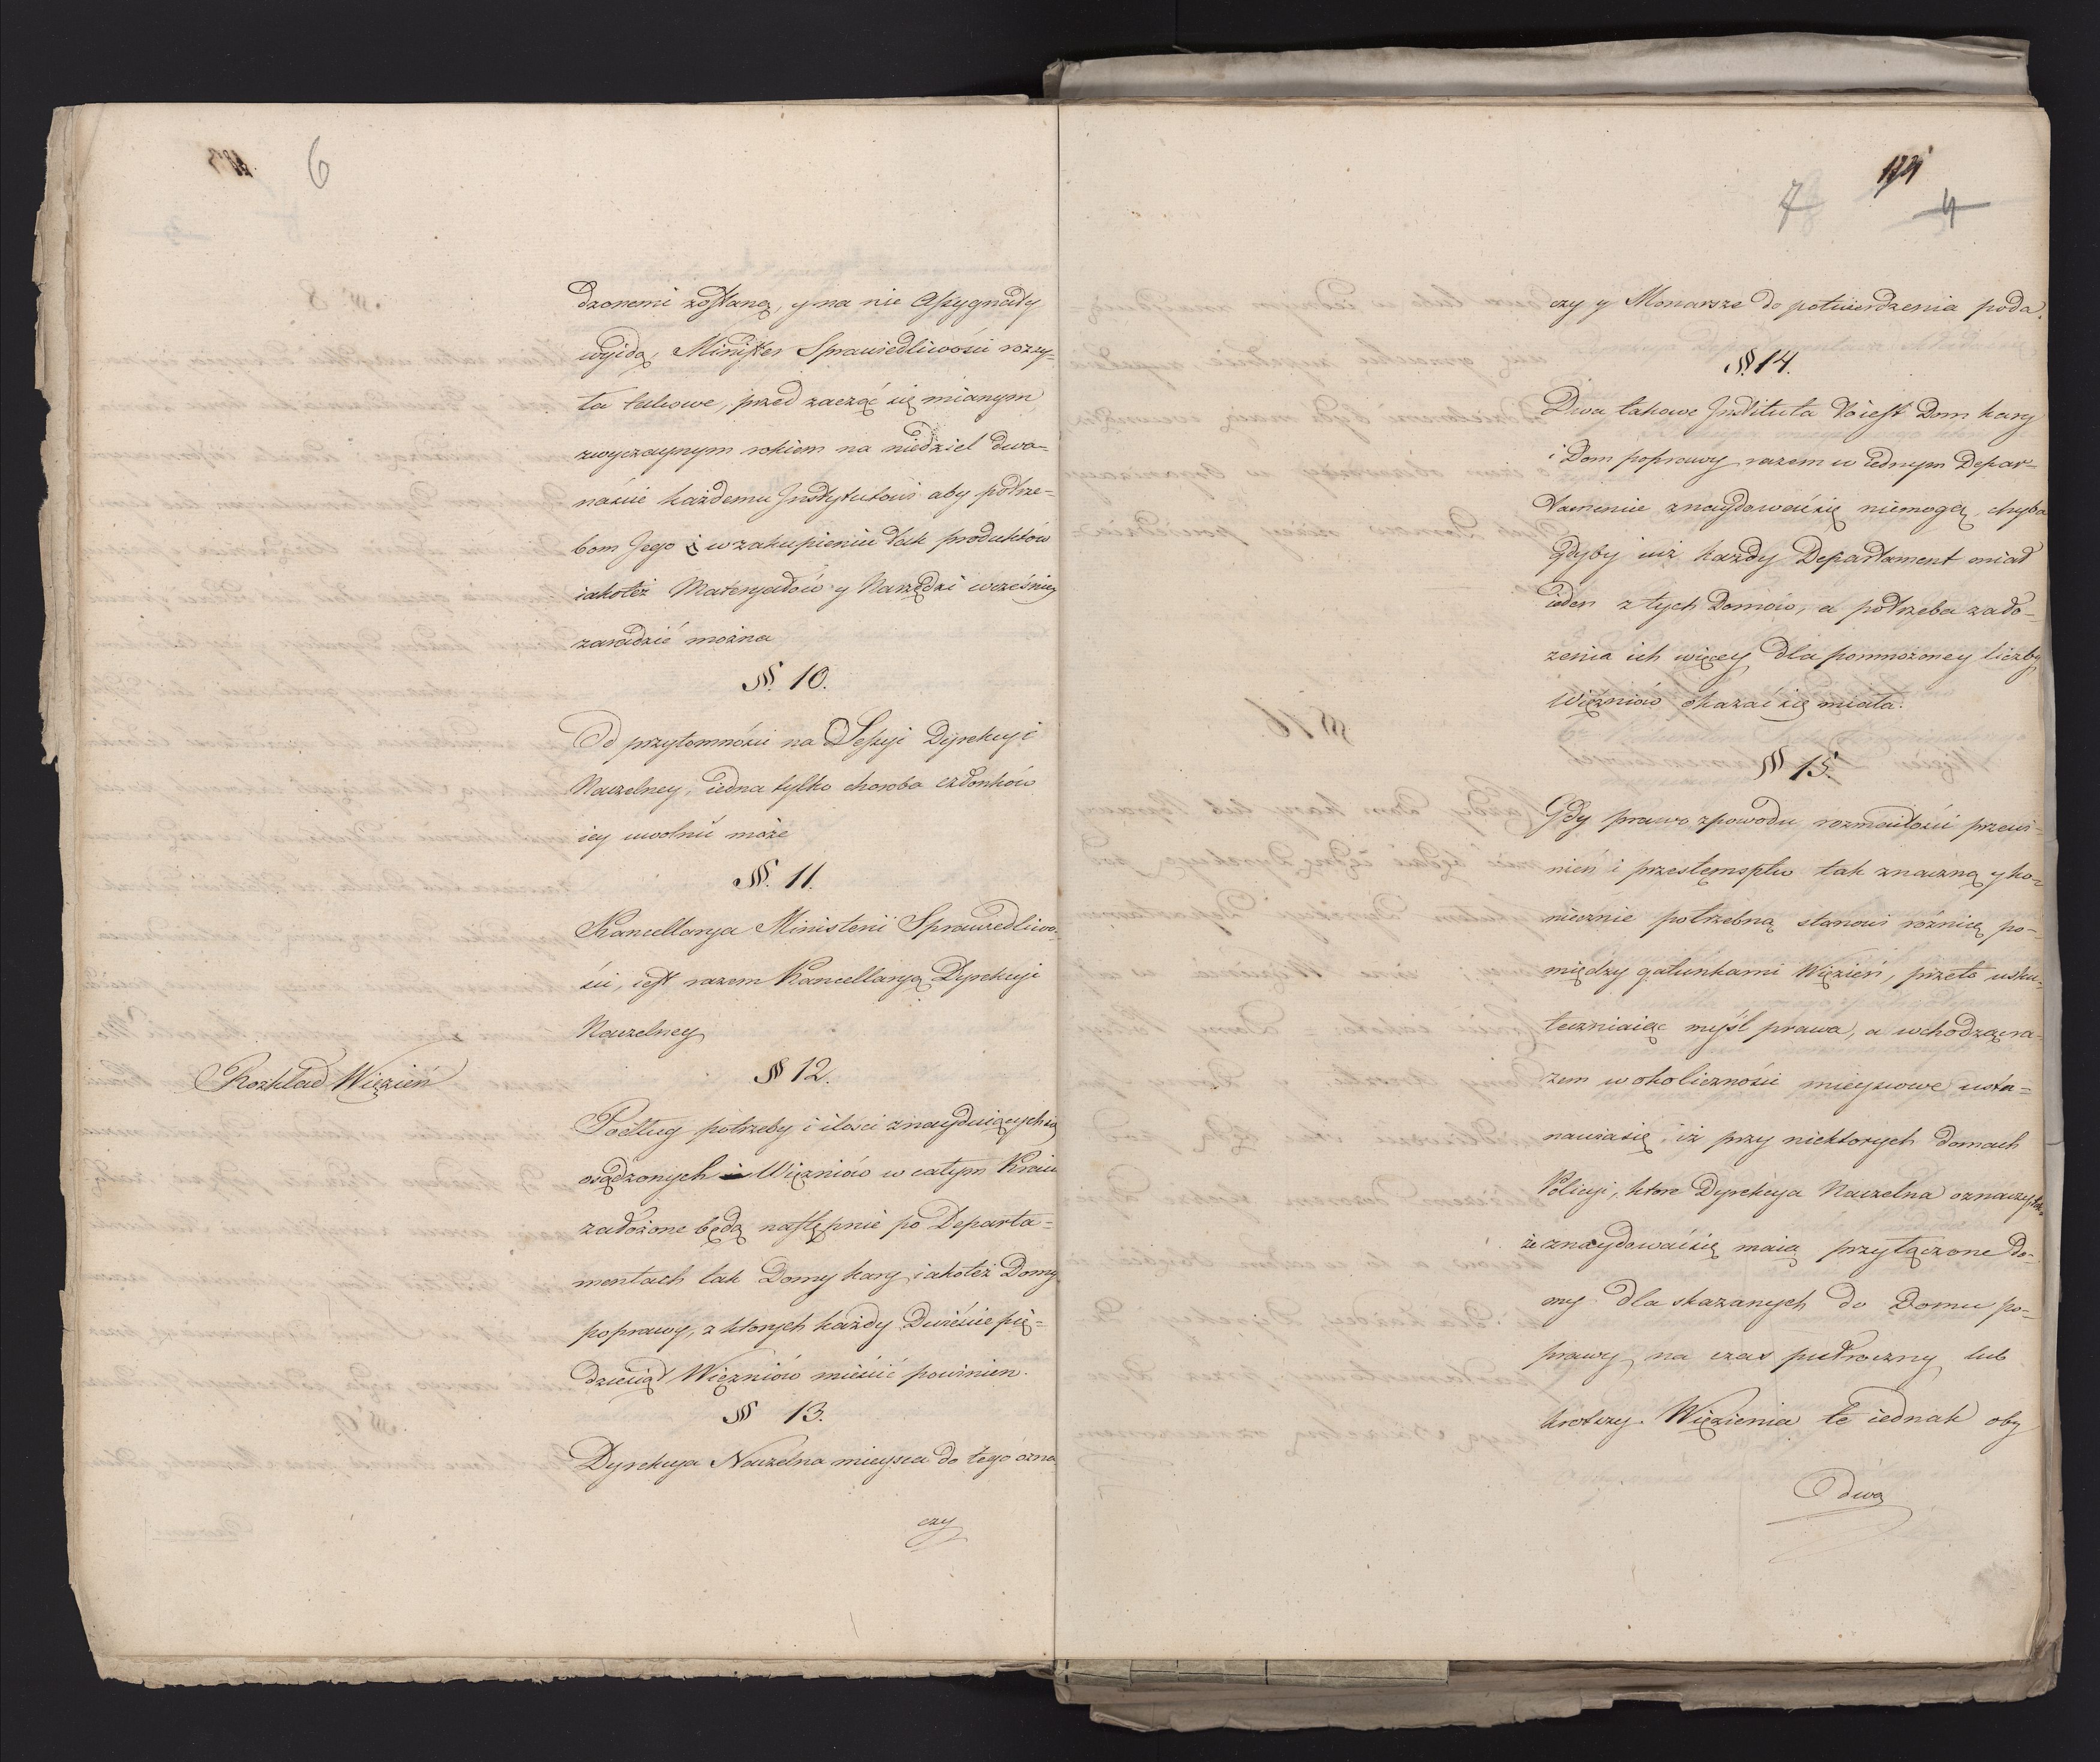 6
dzonemi zostaną, y na nie Assygnaty
wyidą, Minister Sprawiedliwości rozsy=
ła takowe, przed zacząć się mianym
zwyczaynym rokiem na niedziel dwa=
naście każdemu Instytutowi aby potrze=
bom Jego i w zakupieniu tak produktów
iakoteż Materyałów y Narzędzi wcześniey
zaradzić można
§. 10.
Od przytomności na Sessyi Dyrekcyi
Naczelney, iedna tylko choroba członków
iey uwolnić może
§. 11.
Kancellarya Ministerii Sprawiedliwo=
ści, iest razem Kancellaryą Dyrekcyi
Naczelney
§ 12.
Rozkład Więzień
Podług potrzeby i ilości znayduiących się
osądzonych Więzniów w całym Kraiu
założone będą następnie po Departa=
mentach tak Domy kary, iakoteż Domy
poprawy, z których każdy Dwieście pię=
dziesiąt Więzniów mieścić powinien.
§ 13.
Dyrekcya Naczelna mieysca do tego ozna
czy
7
4
czy y Monarsze do potwierdzenia poda.
§. 14.
Dwa takowe Instituta to iest Dom kary
i Dom poprawy razem w iednym Depar=
tamencie znaydować się niemogą, chyba
gdyby iuż każdy Departament miał
ieden z tych Domów, a potrzeba zało=
żenia ich więcey dla pomnożoney liczby
Więzniów okazać się miała.
§ 15.
Gdy prawo z powodu rozmaitości przewi=
nień i przestempstw tak znaczną y ko=
niecznie potrzebną stanowi różnicę po=
między gatunkami Więzień, przeto usku=
teczniaiąc myśl prawa, a wchodząc ra=
zem w okoliczności mieyscowe usta=
nawia się iż przy niektorych domach
Policyi, ktore Dyrekcya Naczelna oznaczy, tak=
że znaydować się maią przyłączone do=
my dla skazanych do Domu po=
prawy na czas pułroczny lub
krotszy. Więzienia te iednak oby
dwa